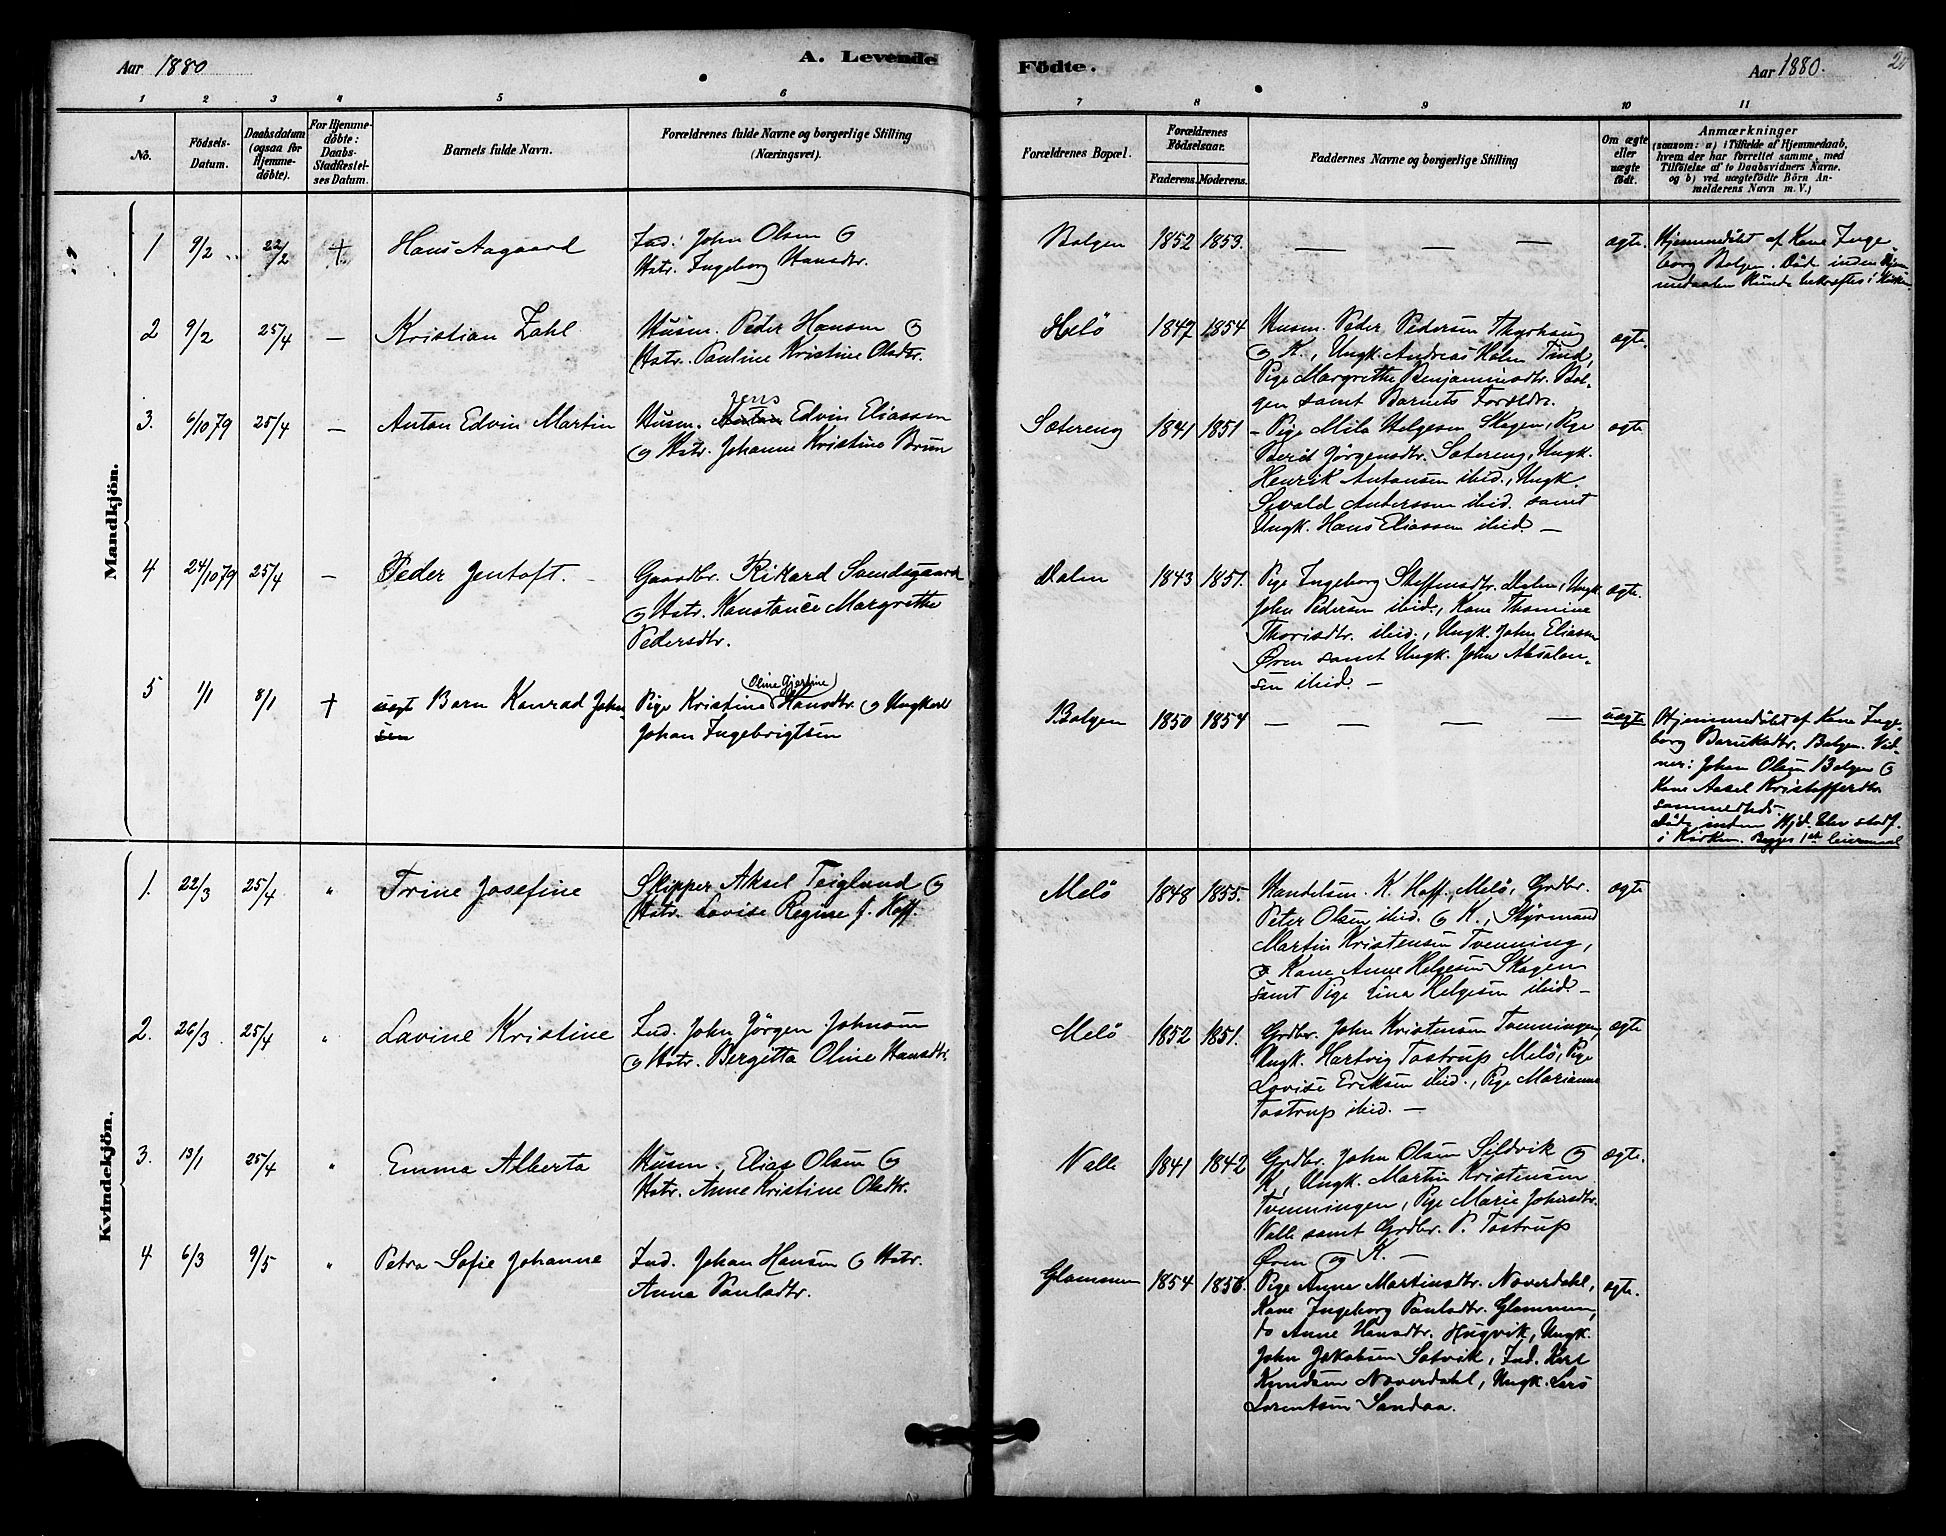 Aar 1880
A. Levende
1 2 3 4 5 6
No.
Födsels-
Datum.
Daabsdatum
(ogsaa for
Hjemme-
döbte).
For Hjemme-
döbte:
Daabs-
Stadfæstel-
ses Datum.
Barnets fulde Navn.
Forældrenes fulde Navne og borgerlige Stilling
(Næringsvei).
Mandkjön.
1 9/2 22/2 + Hans Aagaard Ind. John Olsen og
Hstr. Ingeborg Hansdtr.
2 9/2 25/4 — Kristian Zahl Husm. Peder Hansen og
Hstr. Pauline Kristine Olsdtr.
Jens
3. 6/10 79 25/4 — Anton Edvin Martin Husm. Anton Edvin Eliassen
og Hstr. Johanne Kristine Brun
4 24/10 79 25/4 — Peder Jentoft. Gaardbr. Rikard Sandsgaard
og Hstr. Konstance Margrethe
Pedersdtr.
Oline Gjertine
5 1/1 8/1 + uægt Barn Konrad John Pige Kristine Hansdtr. og Ungkarl
sen Johan Ingebrigtsen
Kvindekjön.
1. 22/3 25/4 " Trine Josefine Skipper Aksel Teiglund og
Hstr. Lovise Regine f. Hoff.
2. 26/3 25/4 " Lavine Kristine Ind. John Jörgen Johnsen
og Hstr. Bergitta Oline Hansdtr.
3. 13/1 25/4 " Emma Alberta Husm. Elias Olsen og
Hstr. Anne Kristine Olsdtr.
4 6/3 9/5 " Petra Sofie Johanne Ind. Johan Hansen og Hstr.
Anna Paulsdtr.
Födte.
Aar 1880.
7 8 9 10 11
Forældrenes Bopæl.
Forældrenes
Födselsaar.
Faderens. Moderens.
Faddernes Navne og borgerlige Stilling
Om ægte
eller
uægte
födt.
Anmærkninger
(saasom: a) i Tilfælde af Hjemmedaab,
hvem der har forrettet samme, med
Tilföielse af to Daabsvidners Navne.
og b) ved uægtefödte Börn An-
melderens Navn m. V.)
Bolgen 1852 1853. — — — — ægte. Hjemmedöbt af Kone Inge
borg Bolgen. Död inden Hjem
medaaben kunde bekræftes i Kirken
Melö 1847 1854 Husm. Peder Pedersen
og K., Ungk. Andreas Holm Tind,
Pige Margrethe Benjaminsdtr. Bol-
gen samt Barnets Forældre.
ægte.
Sætereng 1841 1851 — Pige Mila Helgesen Skagen, Pige
Berit Jörgensdtr. Sætereng, Ungk.
Henrik Antonsen ibid., Ungk.
Sivald Andersen ibid. samt
Ungk. Hans Eliassen ibid. —
ægte
Dalen 1843 1851. Pige Ingeborg Steffensdtr. Dalen, Ungk.
John Pedersen ibid., Kone Thomine
Thorisdtr. ibid., Ungk. John Eliassen
Øren samt Ungk. John Absalon-
sen ibid. —
ægte.
Bolgen 1850 1854 — — — — uægte Hjemmedöbt af Kone Inge-
borg Baruksdtr. Bolgen. Vid-
ner: Johan Olsen Bolgen og
Kone Aasel Kristoffersdtr.
sammesteds.
Döde inden Hjd. blev stadf.
i Kirken. Begges 1ste leiermaal
Melö 1848 1855. Handelsm. K. Hoff, Melö, Grdbr.
Peter Olsen ibid. og K., Styrmand
Martin Kristensen Tvenning,
og Kone Anne Helgesen Skagen
samt Pige Lina Helgesen ibid. —
ægte
Melö 1852 1851. Grdbr. John Kristensen Tvenningen,
Ungk. Hartvig Tostrup Melö, Pige
Lovise Eriksen ibid., Pige Marianne
Tostrup ibid. —
ægte
Valle 1841 1842 Grdbr. John Olsen Sildvik og
K., Ungk. Martin Kristensen
Tvenningen, Pige Marie Johnsdtr.
Valle samt Grdbr. P. Tostrup
Øren og K. —
ægte.
Glommen 1854 1856. Pige Anne Martinsdtr. Noverdahl,
Kone Ingeborg Paulsdtr. Glommen,
do Anne Hansdtr. Hugvik, Ungk.
John Jakobsen Satvik, Ind. Karl
Knudsen Noverdahl, Ungk. Lars
Lorentsen Sandaa.
ægte.